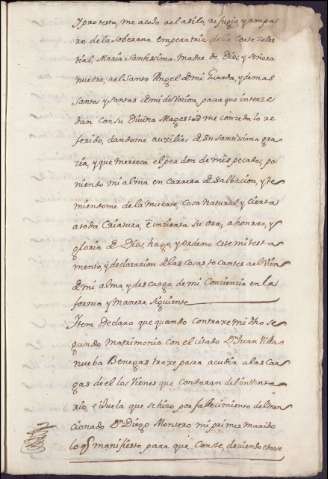 Y protesta, me acudo al asilo, refugio y ampa-
ro de la soberana emperatriz de la Corte Seles-
tial, Maria Santissima Madre de Dios, y Señora
nuestra, al Santo Angel de mi Guarda, y demas
Santos y Santas de mi devocion, para que interze-
dan con Su Divina Magestad me conceda lo re-
ferido, dandome auxilios de su santissima gra-
zia, y que meresca el perdon de mis pecados, po-
niendo mi alma en Carrera de salbacion, y te-
miendome de la muerte, cosa natural y cierta
a toda criatura, e incierta su ora, a honrra, y
gloria de Dios, hago, y ordeno este mi testa-
mento, y declarazion de las cosas tocantes al vien
de mi alma y descargo de mi Conciencia en la
forma y manera siguiente
Item Declaro que quando contraxe mi dho se-
gundo Matrimonio con el citado Dn Juan Villa-
nueba Benegas traxe para acudir a las car-
gas de el los vienes que constaran del inventa-
rio, e ijuela que se hizo por fallecimiento del men-
cionado Dn Diego Montero mi primer marido
lo qe manifiesto para que conste, deviendo